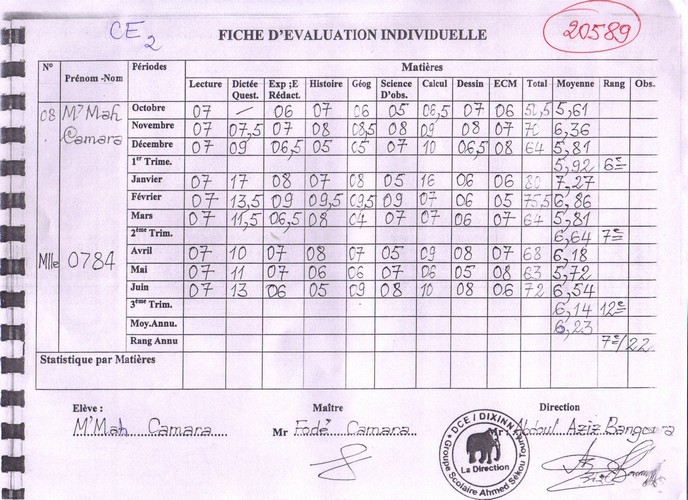 CE2
FICHE D'EVALUATION INDIVIDUELLE
20589
N° Prénom -Nom Périodes Matières
Lecture Dictée Quest. Exp ;E Rédact. Histoire Géog Science D'obs. Calcul Dessin ECM Total Moyenne Rang Obs.
08 M'Mah Camara
Mlle 0784
Octobre 07 — 06 07 06 05 06,5 07 06 50,5 5,61
Novembre 07 07,5 07 08 08,5 08 09 08 07 70 6,36
Décembre 07 09 06,5 05 05 07 10 06,5 08 64 5,81
1er Trime. 5,92 6e
Janvier 07 17 08 07 08 05 16 06 06 80 7,27
Février 07 13,5 09 09,5 09,5 09 07 06 05 75,5 6,86
Mars 07 11,5 06,5 08 04 07 07 06 07 64 5,81
2ème Trim. 6,64 7e
Avril 07 10 07 08 07 05 09 08 07 68 6,18
Mai 07 11 07 06 06 07 06 05 08 63 5,72
Juin 07 13 06 05 09 08 10 08 06 72 6,54
3ème Trim. 6,14 12e
Moy.Annu. 6,23
Rang Annu 7e/22
Statistique par Matières
Elève : Maître Direction
M'Mah Camara Mr Fodé Camara Mr : Abdoul Aziz Bangoura
DCE / DIXINN
La Direction
Groupe Scolaire Ahmed Sékou Touré